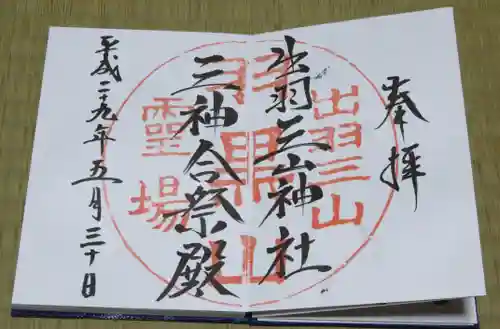 奉拝
出羽三山神社
三神合祭殿
平成二十九年五月三十日
出羽三山
霊場